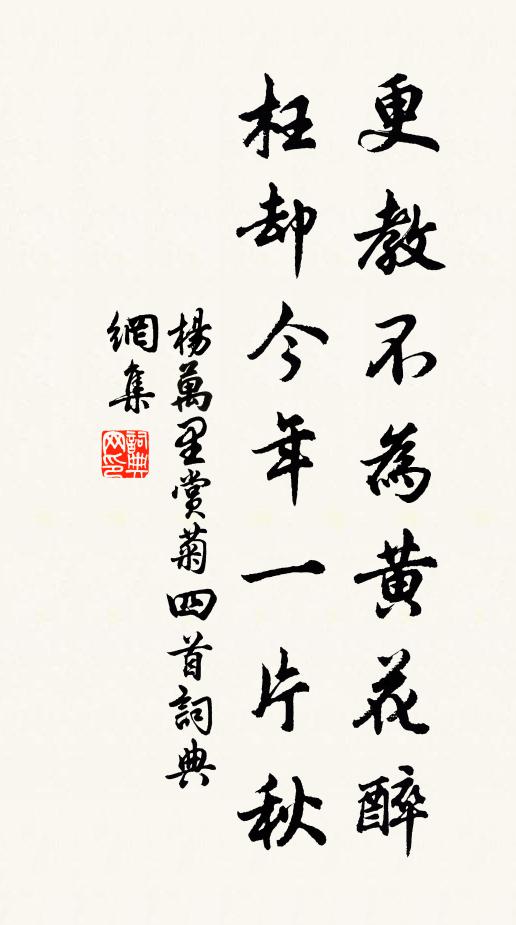 更教不為黃花醉
枉却今年一片秋
楊萬里賞菊四首詞典
網集
詞典网印